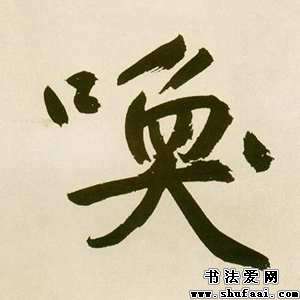 喚
书法爱网
www.shufaai.com